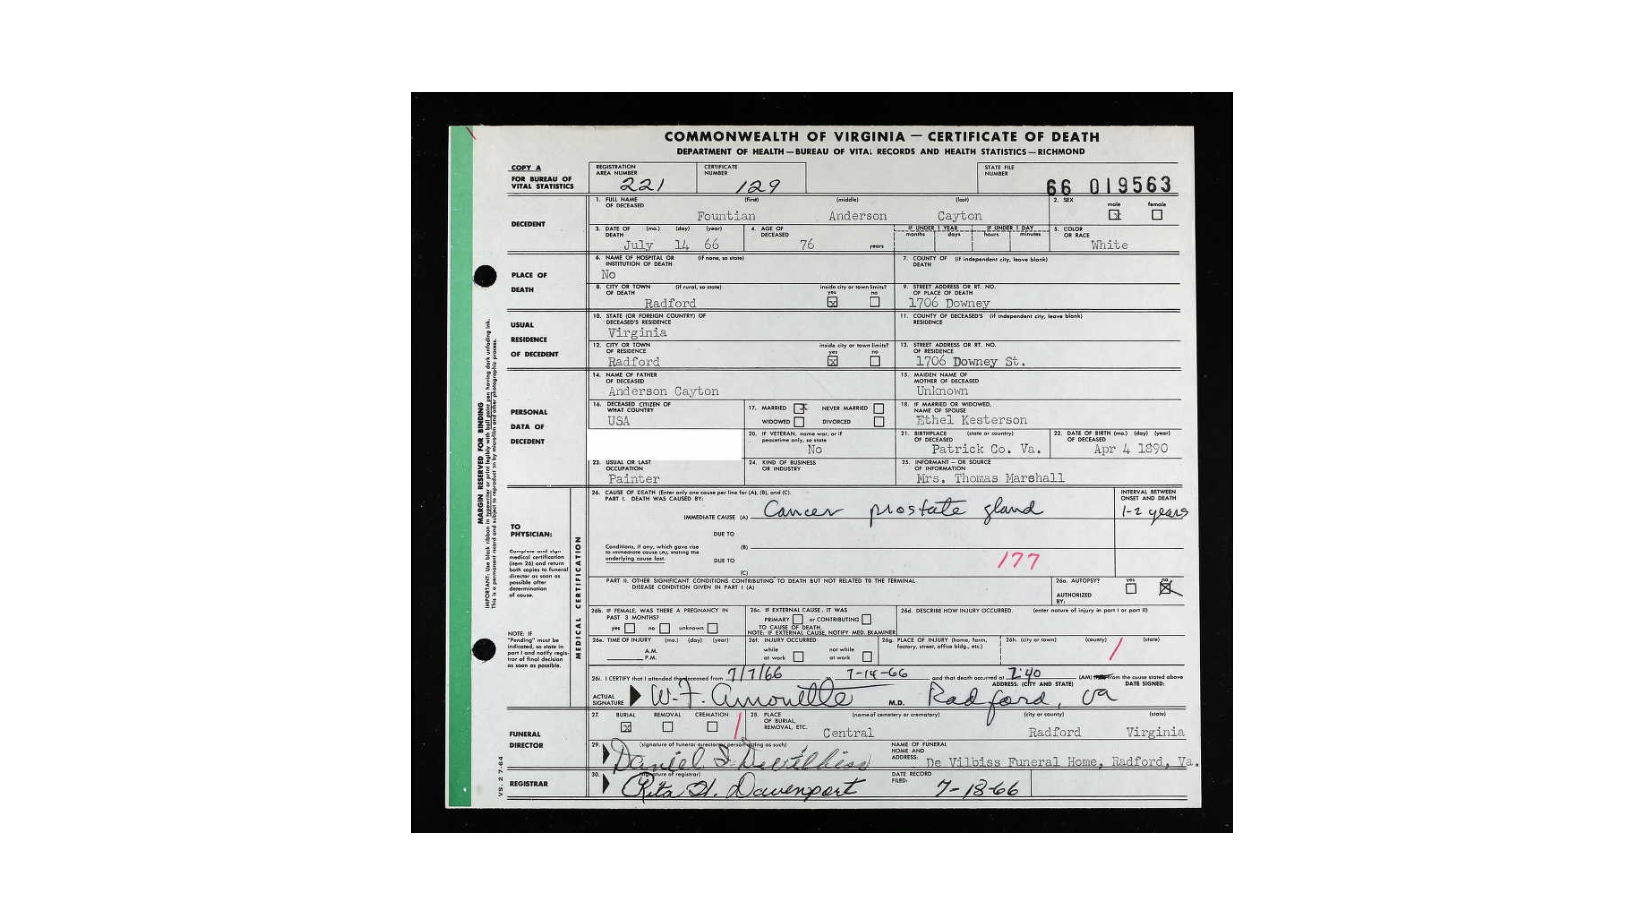 COMMONWEALTH OF VIRGINIA — CERTIFICATE OF DEATH
DEPARTMENT OF HEALTH—BUREAU OF VITAL RECORDS AND HEALTH STATISTICS—RICHMOND
COPY A
FOR BUREAU OF VITAL STATISTICS
REGISTRATION AREA NUMBER 221
CERTIFICATE NUMBER 129
STATE FILE NUMBER 66 019563
DECEDENT
1. FULL NAME OF DECEASED (first) (middle) (last)
Fountian Anderson Cayton
2. SEX male ☒ female ☐
3. DATE OF DEATH (mo.) (day) (year)
July 14 66
4. AGE OF DECEASED 76 years
IF UNDER 1 YEAR months days
IF UNDER 1 DAY hours minutes
5. COLOR OR RACE White
PLACE OF DEATH
6. NAME OF HOSPITAL OR INSTITUTION OF DEATH (if none, so state)
No
7. COUNTY OF DEATH (if independent city, leave blank)
8. CITY OR TOWN OF DEATH (if rural, so state)
Radford
inside city or town limits? yes ☒ no ☐
9. STREET ADDRESS OR RT. NO. OF PLACE OF DEATH
1706 Downey
USUAL RESIDENCE OF DECEDENT
10. STATE (OR FOREIGN COUNTRY) OF DECEASED'S RESIDENCE
Virginia
11. COUNTY OF DECEASED'S RESIDENCE (if independent city, leave blank)
12. CITY OR TOWN OF RESIDENCE
Radford
inside city or town limits? yes ☒ no ☐
13. STREET ADDRESS OR RT. NO. OF RESIDENCE
1706 Downey St.
PERSONAL DATA OF DECEDENT
14. NAME OF FATHER OF DECEASED
Anderson Cayton
15. MAIDEN NAME OF MOTHER OF DECEASED
Unknown
16. DECEASED CITIZEN OF WHAT COUNTRY
USA
17. MARRIED ☒ NEVER MARRIED ☐
WIDOWED ☐ DIVORCED ☐
18. IF MARRIED OR WIDOWED, NAME OF SPOUSE
Ethel Kesterson
20. IF VETERAN, name war, or if peacetime only, so state
No
21. BIRTHPLACE OF DECEASED (state or country)
Patrick Co. Va.
22. DATE OF BIRTH OF DECEASED (mo.) (day) (year)
Apr 4 1890
23. USUAL OR LAST OCCUPATION
Painter
24. KIND OF BUSINESS OR INDUSTRY
25. INFORMANT — OR SOURCE OF INFORMATION
Mrs. Thomas Marshall
TO PHYSICIAN:
Complete and sign medical certification (item 26) and return both copies to funeral director as soon as possible after determination of cause.
NOTE: IF "Pending" must be indicated, so state in part I and notify registrar of final decision as soon as possible.
MEDICAL CERTIFICATION
26. CAUSE OF DEATH (Enter only one cause per line for (A), (B), and (C).
PART I. DEATH WAS CAUSED BY:
IMMEDIATE CAUSE (A) Cancer prostate gland
INTERVAL BETWEEN ONSET AND DEATH
1-2 years
DUE TO
Conditions, if any, which gave rise to immediate cause (A), stating the underlying cause last.
(B)
DUE TO
(C)
177
PART II. OTHER SIGNIFICANT CONDITIONS CONTRIBUTING TO DEATH BUT NOT RELATED TO THE TERMINAL DISEASE CONDITION GIVEN IN PART I (A)
26a. AUTOPSY? yes ☐ no ☒
AUTHORIZED BY:
26b. IF FEMALE, WAS THERE A PREGNANCY IN PAST 3 MONTHS?
yes ☐ no ☐ unknown ☐
26c. IF EXTERNAL CAUSE, IT WAS
PRIMARY ☐ or CONTRIBUTING ☐
TO CAUSE OF DEATH.
NOTE: IF EXTERNAL CAUSE, NOTIFY MED. EXAMINER
26d. DESCRIBE HOW INJURY OCCURRED. (enter nature of injury in part I or part II)
26e. TIME OF INJURY (mo.) (day) (year)
A.M.
P.M.
26f. INJURY OCCURRED
while at work ☐ not while at work ☐
26g. PLACE OF INJURY (home, farm, factory, street, office bldg., etc.)
26h. (city or town) (county) (state)
26i. I CERTIFY that I attended the deceased from 7/7/66 7-14-66 and that death occurred at 7:40 (AM) from the cause stated above
ACTUAL SIGNATURE W. F. Amonette M.D.
ADDRESS: (CITY AND STATE) Radford, Va
DATE SIGNED:
FUNERAL DIRECTOR
27. BURIAL ☒ REMOVAL ☐ CREMATION ☐
28. PLACE OF BURIAL, REMOVAL, ETC. (name of cemetery or crematory) (city or county) (state)
Central Radford Virginia
29. (signature of funeral director or person acting as such)
Daniel S. DeVilbiss
NAME OF FUNERAL HOME AND ADDRESS: De Vilbiss Funeral Home, Radford, Va.
REGISTRAR
30. (signature of registrar)
Rita H. Davenport
DATE RECORD FILED: 7-18-66
MARGIN RESERVED FOR BINDING
VS. 2 7-64